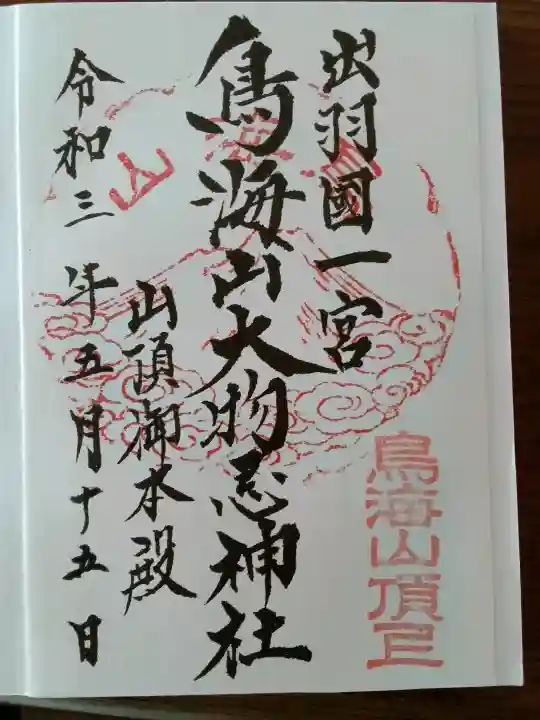 出羽國一宮
鳥海山大物忌神社
山頂御本殿
令和三年五月十五日
鳥海山
鳥海山頂